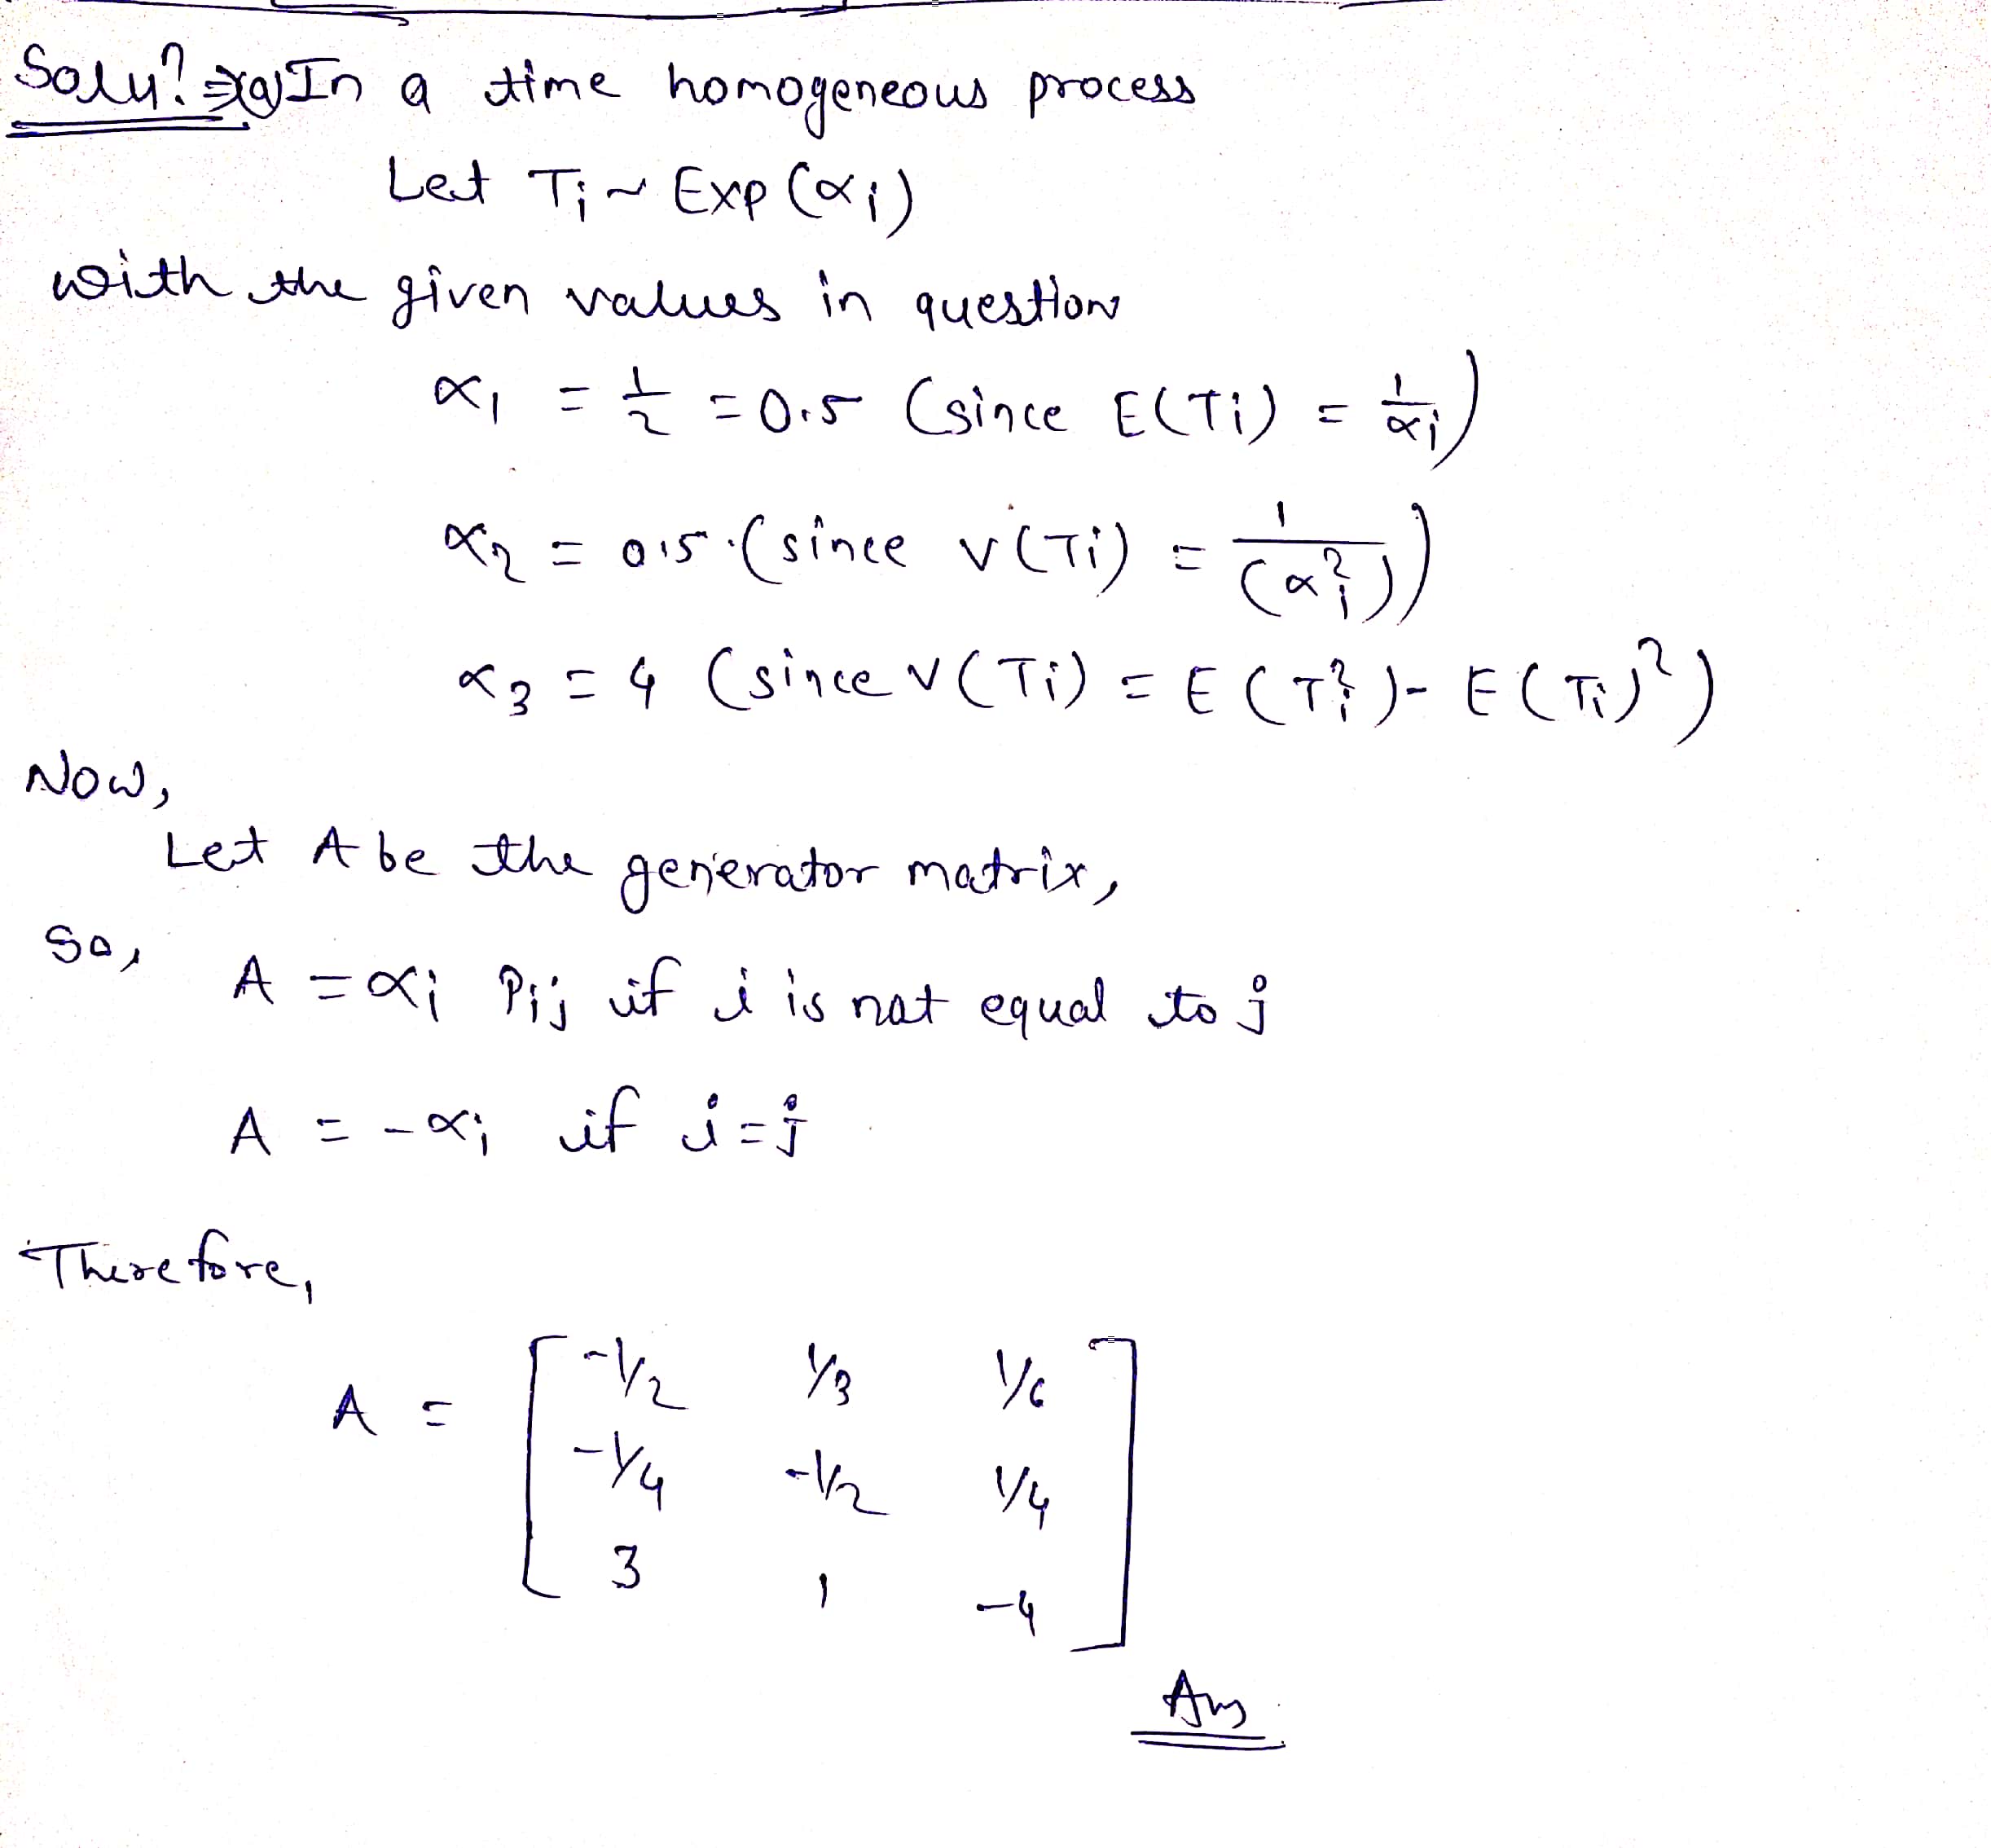 Solu? ⇒(a) In a time homogeneous process
Let Ti ~ Exp (αi)
with the given values in question
α1 = 1/2 = 0.5 (since E(Ti) = 1/αi)
α2 = 0.5 (since V(Ti) = 1/(αi²))
α3 = 4 (since V(Ti) = E(Ti²) - E(Ti)²)
Now,
Let A be the generator matrix,
So,
A = αi Pij if i is not equal to j
A = -αi if i=j
Therefore,
A = [ -1/2 1/3 1/6
-1/4 -1/2 1/4
3 1 -4 ]
Ans